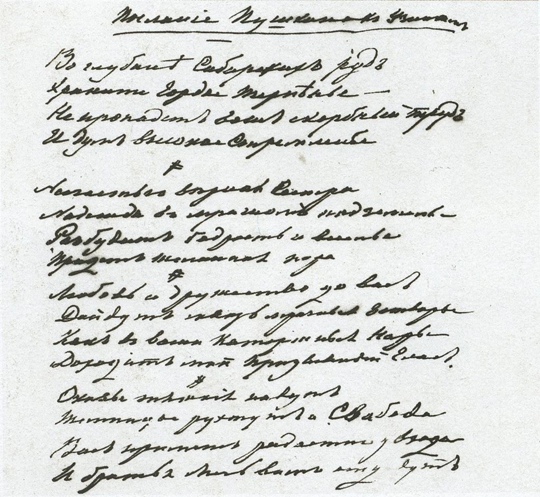 Послание Пушкина къ
Во глубинѣ Сибирскихъ рудъ
Храните гордое терпѣнье —
Не пропадетъ вашъ скорбный трудъ
И думъ высокое стремленье
Несчастью вѣрная сестра
Надежда въ мрачномъ подземелье
Разбудитъ бодрость и веселье
Придетъ желанная пора
Любовь и дружество до васъ
Дойдутъ сквозь мрачные затворы
Какъ въ ваши каторжные норы
Доходитъ мой призывный гласъ.
Оковы тяжкія падутъ
Темницы рухнутъ и Свобода
Васъ приметъ радостно у входа
И братья мечь вамъ отдадутъ